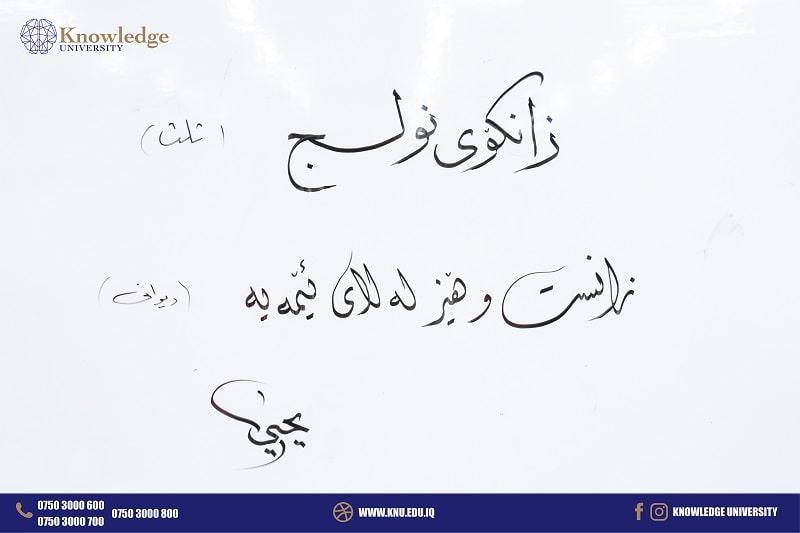 Knowledge
UNIVERSITY
زانکۆی نولج (ثلث)
زانست و هێز لە لای ئێمەیە (دیوانی)
یحیی
0750 3000 600
0750 3000 700
0750 3000 800
WWW.KNU.EDU.IQ
KNOWLEDGE UNIVERSITY